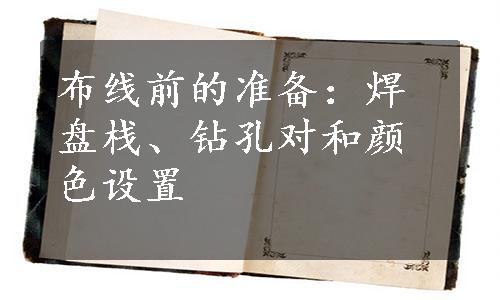 布线前的准备：焊
盘栈、钻孔对和颜
色设置